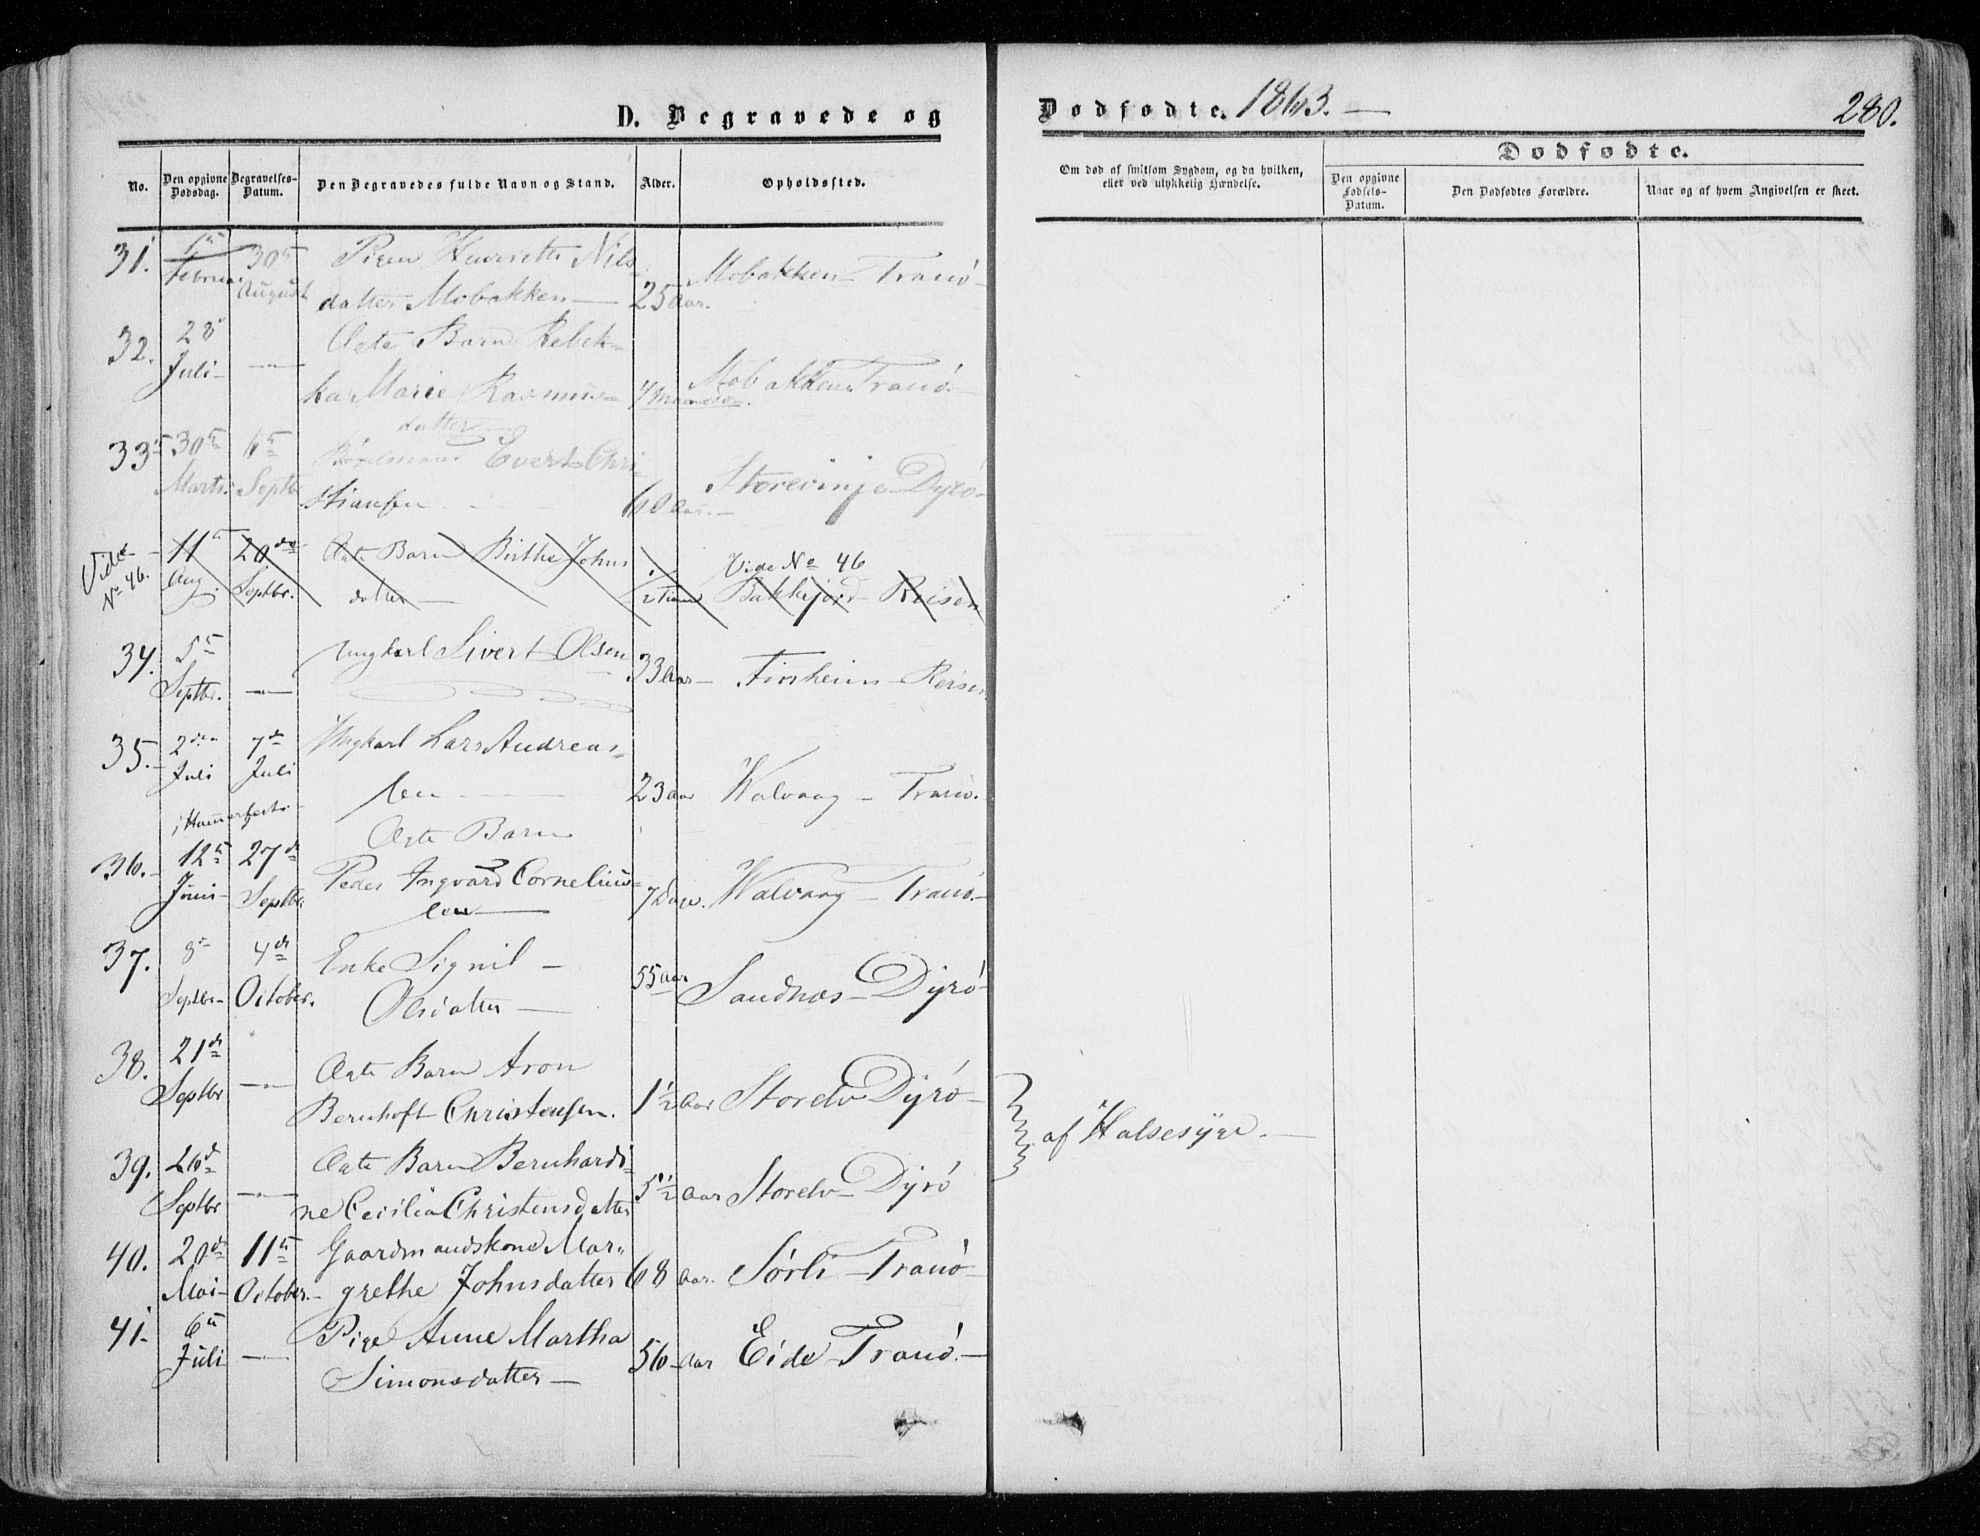 D. Begravede og
Dødfødte. 1863. —
280.
No.
Den opgivne Dødsdag.
Begravelses-Datum.
Den Begravedes fulde Navn og Stand.
Alder.
Opholdssted.
Om død af smitsom Sygdom, og da hvilken,
eller ved ulykkelig Hændelse.
Dødfødte.
Den opgivne Fødsels-Datum.
Den Dødfødtes Forældre.
Naar og af hvem Angivelsen er skeet.
31. Februar 30te August Pigen Henriette Nils-
datter Mobakken — 25 Aar. Mobakken Tranö
32. 28 Juli — Ægte Barn Rebek-
ka Marie Rasmus-
datter 4 Maaneder. Mobakken Tranö. —
33. 30te Marts. 6te Septbr Evert Chri-
stiansen 60 Aar. Storevinje Dyrö
Vide No 46. 11te Aug. 20de Septbr. Ægte Barn Birthe Johns
datter — Vide No 46
Bakkejord Reisen
34. 5te Septbr. — Ungkarl Sivert Olsen 33 Aar — Finsheim Reisen
35. 2den Juli 7de Juli Ungkarl Lars Andreas-
sen — 23 Aar Walvaag — Tranö.
i Hammerfest
Ægte Barn
36. 12te Juni 27de Septbr. Peder Ingvard Cornelius-
sen — 7 Dage. Walvaag — Tranö. —
37. 8de Septbr. 4de October. Enke Signil —
Olsdatter — 55 Aar Sandnæs — Dyrö
38. 21de Septbr — Ægte Barn Aron
Bernhoft Christensen. 1½ Aar Storelv Dyrö —
af Halsesyge. —
39. 26de Septbr — Ægte Barn Bernhardi-
ne Cecilia Christensdatter 5½ Aar Storelv — Dyrö
40. 20de Mai 11te October. Gaardmandskone Mar-
grethe Johnsdatter 68 Aar. Sørli — Tranö
41. 6te Juli — Pige Anne Martha
Simonsdatter — 56 Aar Eide Tranö. —